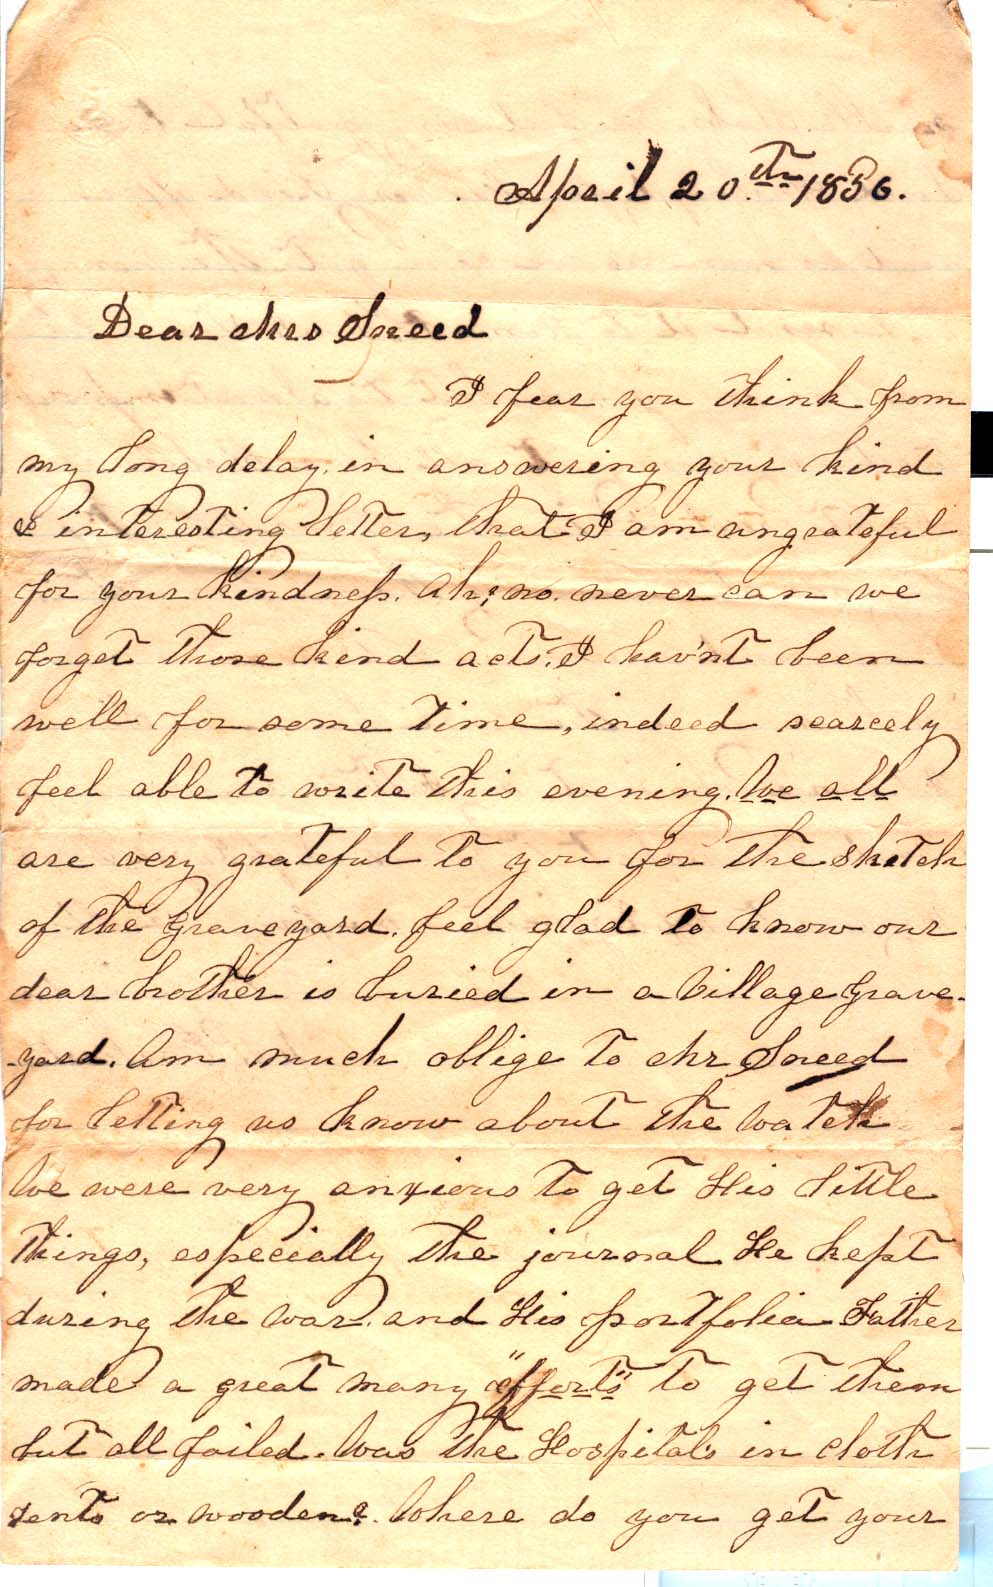 April 20.th 1886.
Dear Mrs Sneed
I fear you think from
my long delay in answering your kind
& interesting letter, that I am ungrateful
for your kindness. Ah; no. never can we
forget those kind acts. I hav'nt been
well for some time, indeed scarcely
feel able to write this evening. We all
are very grateful to you for the sketch
of the Graveyard. feel glad to know our
dear brother is buried in a Village Grave-
-yard. Am much oblige to Mr Sneed
for letting us know about the watch
We were very anxious to get His little
things, especially the journal He kept
during the war. and His portfolia Father
made a great many "efforts" to get them
but all failed. Was the Hospitals in cloth
tents or wooden? Where do you get your